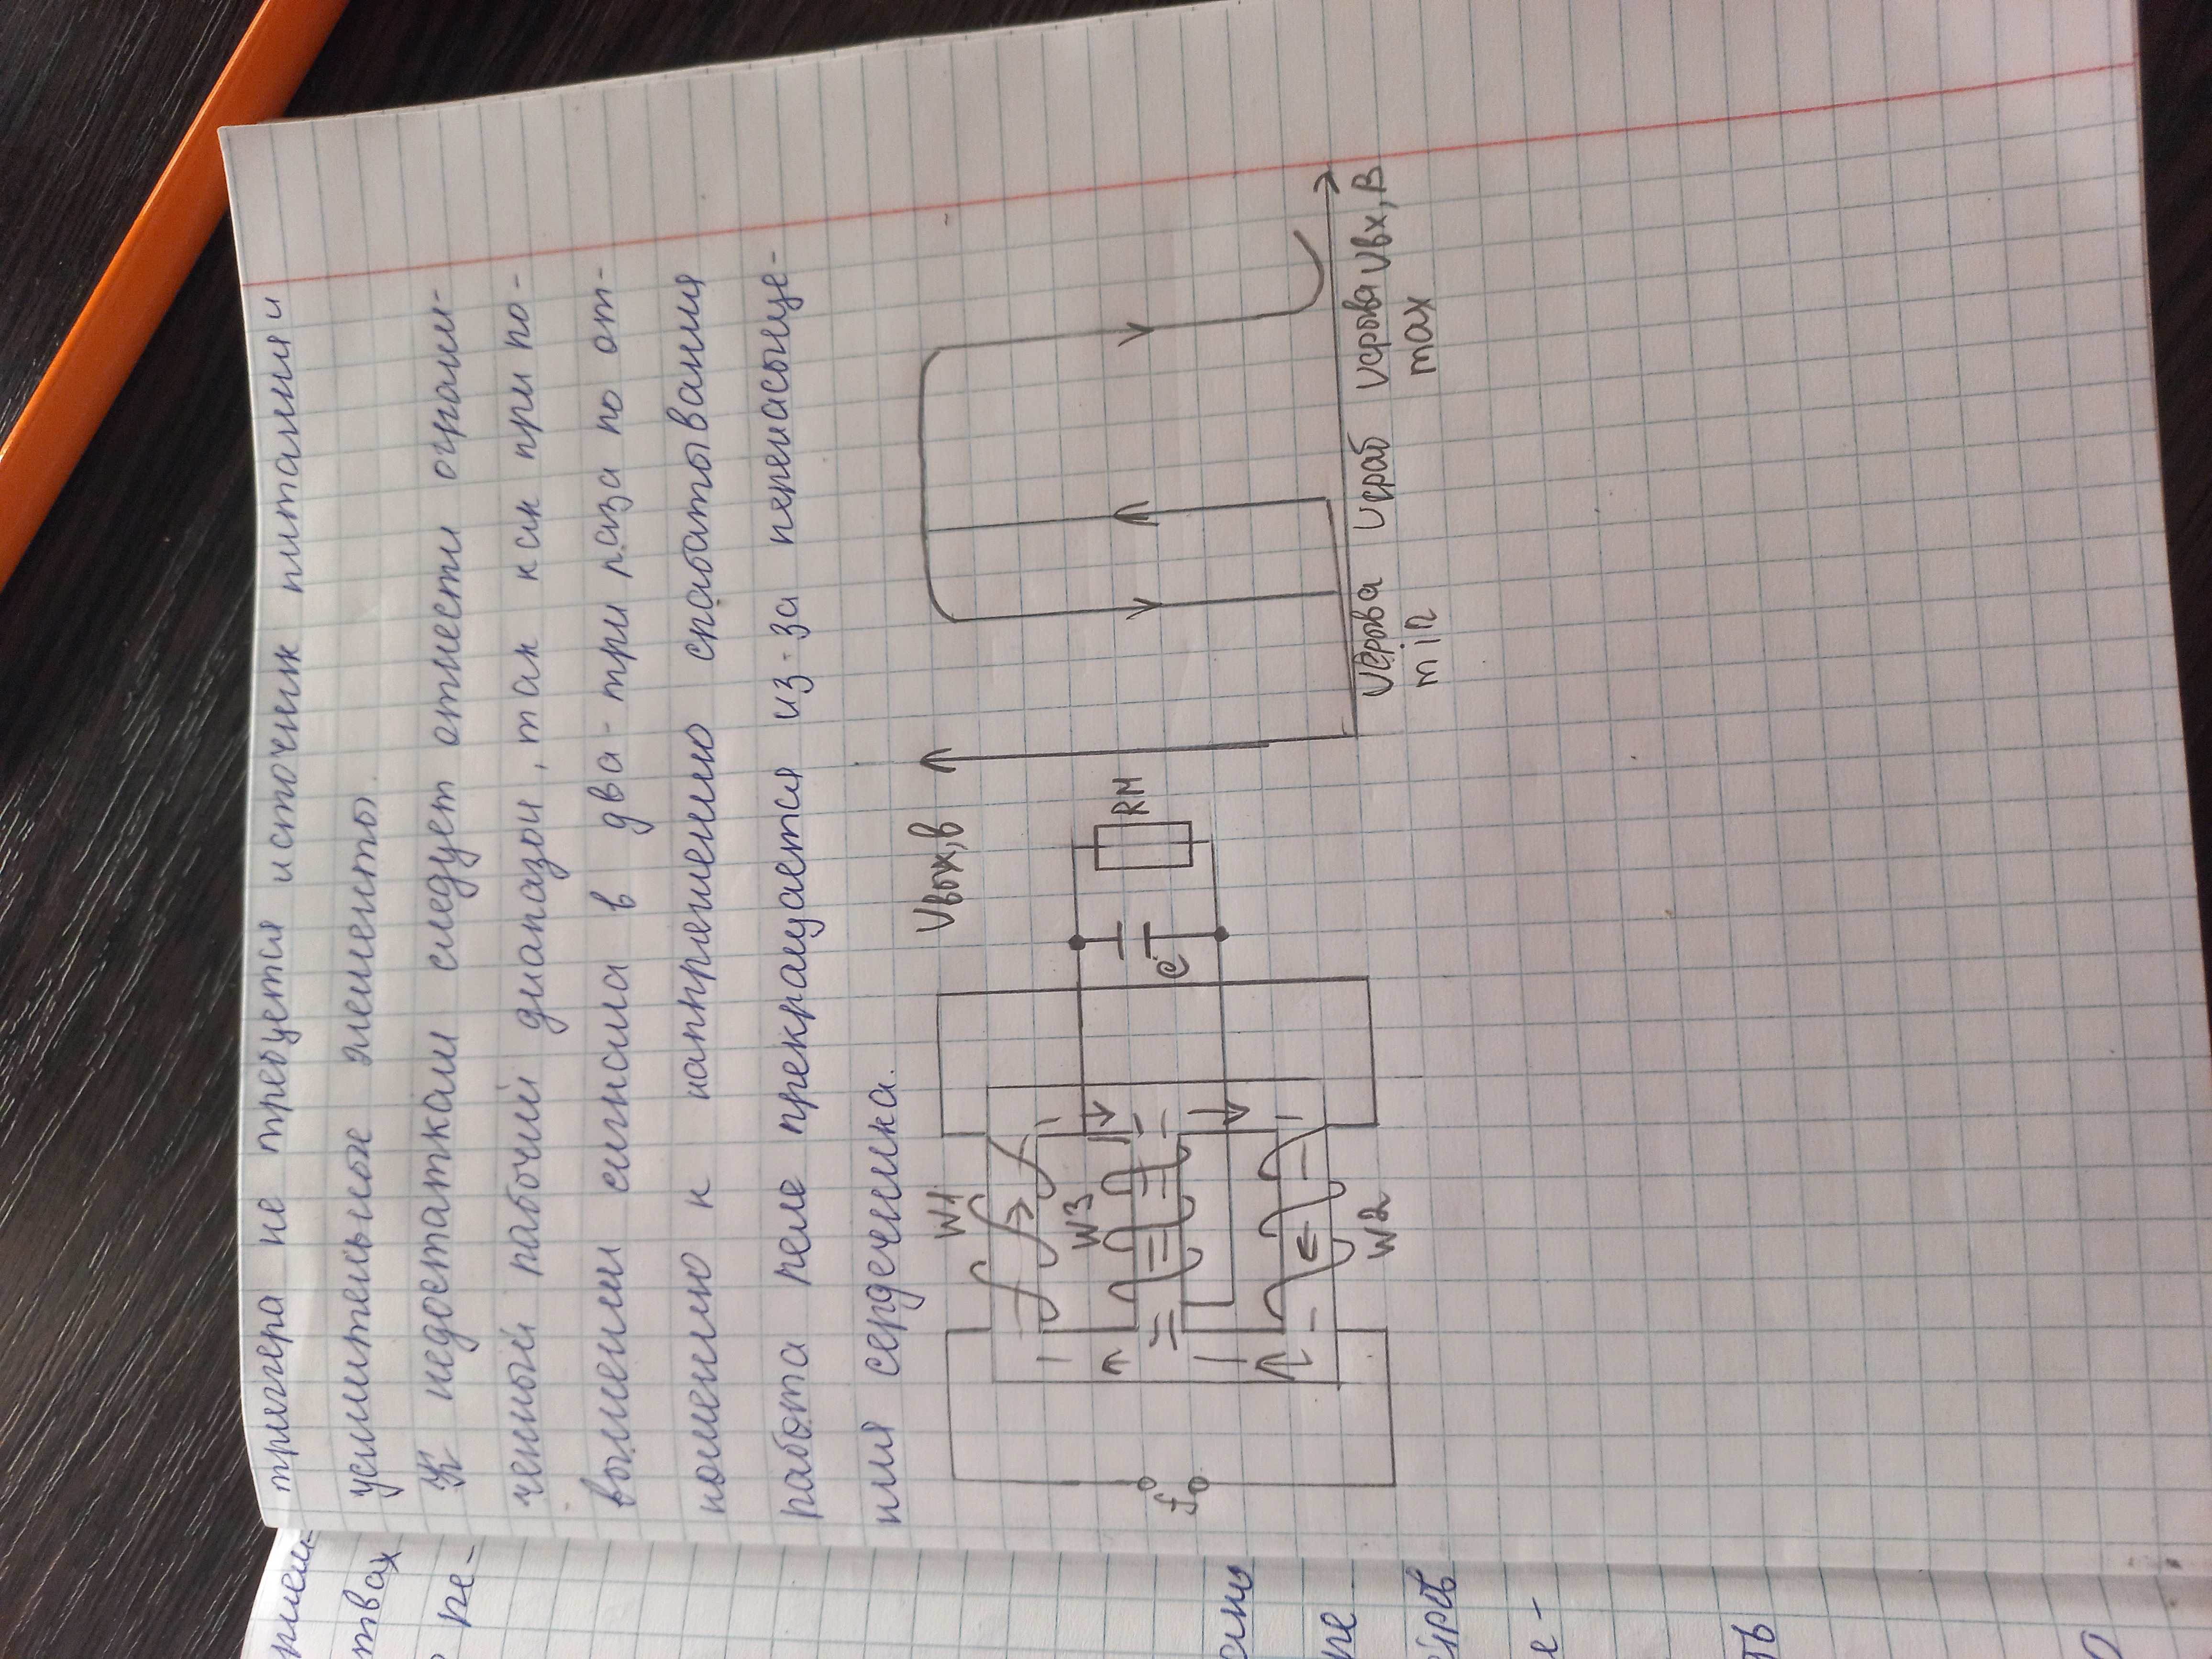 триггера не требуется источник питания и
усилительные элементы.
К недостаткам следует отнести ограни-
ченный рабочий диапазон, так как при по-
вышении сигнала в два-три раза по от-
ношению к напряжению срабатывания
работа реле прекращается из-за перенасыще-
ния сердечника.
W1
W3
W2
f
C
RH
Uвых, В
Uсрыва min
Uсраб
Uсрыва max
Uвх, В
твах
ре-
ре
е-
ть